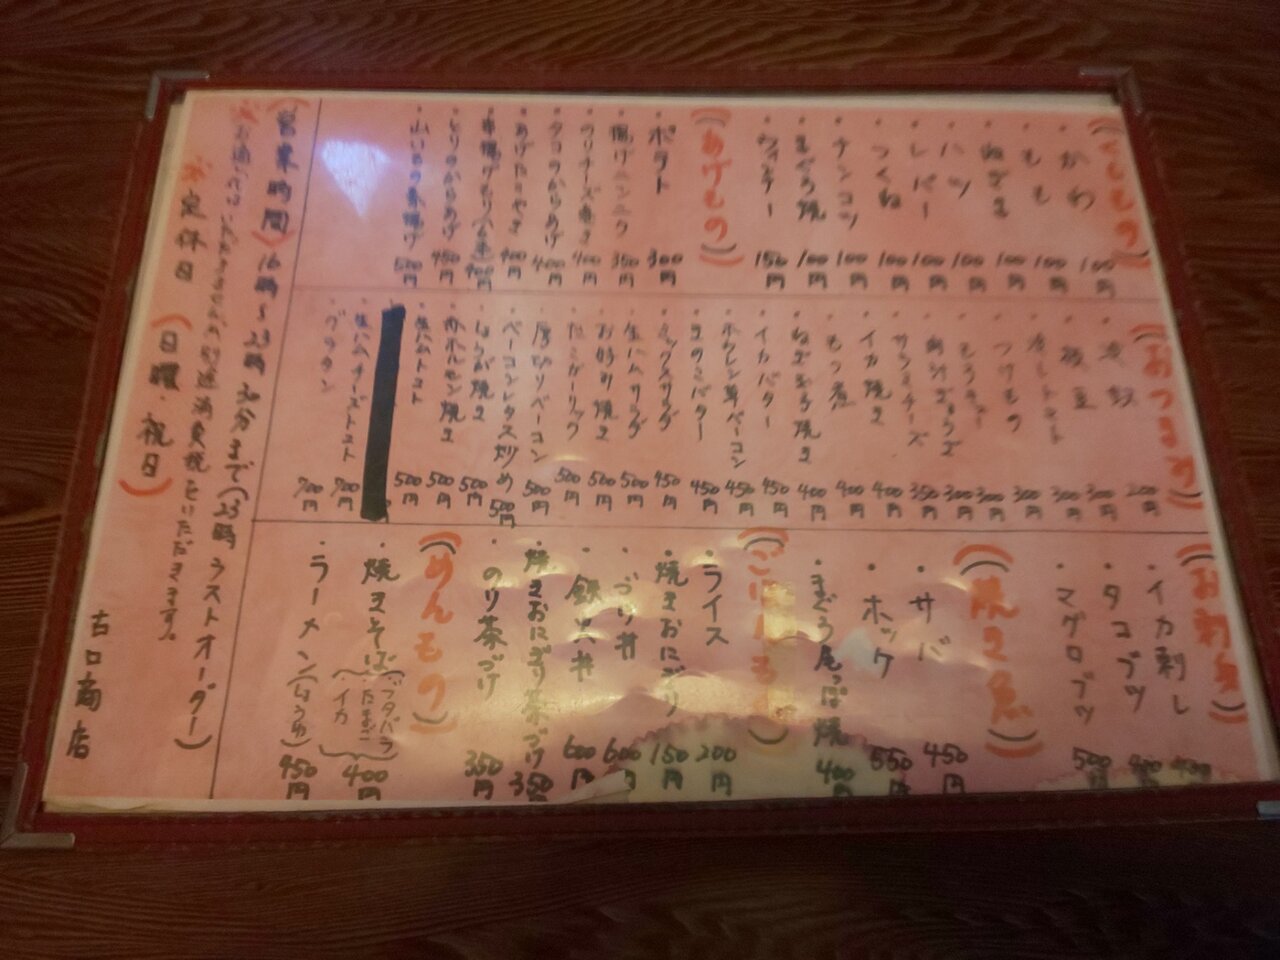 (くしもの)
・かわ 100円
・もも 100円
・ねぎま 100円
・ハツ 100円
・レバー 100円
・つくね 100円
・ナンコツ 100円
・まぐろ焼 100円
・ウィンナー 150円
(あげもの)
・ポテト 300円
・揚げニンニク 350円
・400円
・タコのからあげ 400円
・あげたこやき 400円
・400円
・とりのからあげ 450円
・山いもの磯揚げ 500円
(おつまみ)
・冷奴 200円
・枝豆 300円
・冷しトマト 300円
・つけもの 300円
・300円
・300円
・チーズ 350円
・イカ焼き 400円
・もつ煮 400円
・ねぎ玉子焼き 400円
・イカバター 450円
・ホウレン草ベーコン 450円
・きのこバター 450円
・ミックスサラダ 450円
・生ハムサラダ 500円
・お好み焼き 500円
・たこガーリック 500円
・厚切りベーコン 500円
・ベーコンレタス炒め 500円
・しょうが焼き 500円
・ホルモン焼き 500円
・生ハムトマト 500円
・生ハムチーズトマト 700円
・グラタン 700円
(お刺身)
・イカ刺し 400円
・タコブツ 400円
・マグロブツ 500円
(焼き魚)
・サバ 450円
・ホッケ 550円
・まぐろ尾っぽ焼 400円
(ごはんもの)
・ライス 200円
・焼きおにぎり 150円
・づけ丼 600円
・鉄火丼 600円
・焼きおにぎり茶づけ 350円
・のり茶づけ 350円
(めんもの)
・焼きそば(ブタバラ・たまご・イカ) 400円
・ラーメン(しょうゆ) 450円
(営業時間)16時～23時30分まで(23時ラストオーダー)
※定休日 (日曜・祝日)
古口商店